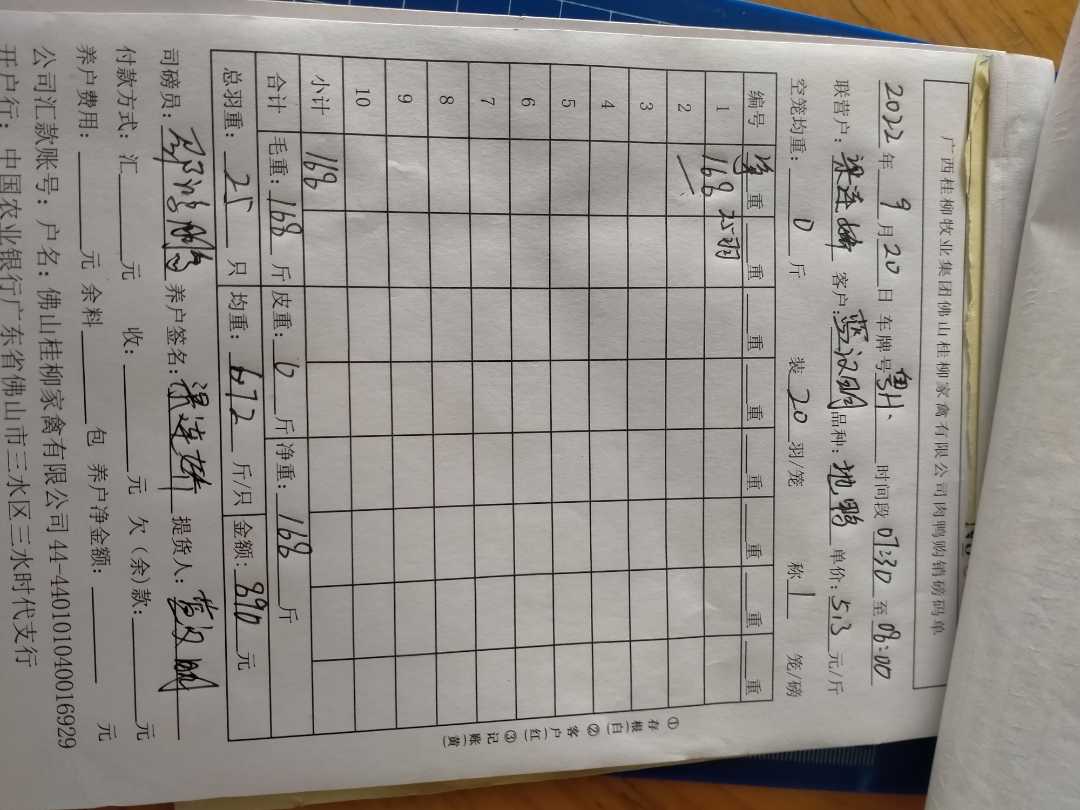 广西桂柳牧业集团佛山桂柳家禽有限公司肉鸭购销磅码单
2022年9月20日 车牌号 时间段07:30至08:00
联营户: 梁连 客户: 汉明 品种: 地鸭 单价: 5.3元/斤
空笼均重: 0斤 装20羽/笼 称1笼/磅
编号 净重 重 重 重 重 重 重 重
1 168 25羽
2
3
4
5
6
7
8
9
10
小计 168
合计 毛重: 168斤 皮重: 0斤 净重: 168斤
总羽重: 25只 均重: 6.72斤/只 金额: 890元
司磅员: 鹏 养户签名: 梁连 提货人: 汉明
付款方式: 汇 元 收: 元 欠(余)款: 元
养户费用: 元 余料 包 养户净金额: 元
公司汇款账号: 户名: 佛山桂柳家禽有限公司 44-440101040016929
开户行: 中国农业银行广东省佛山市三水区三水时代支行
①存根(白) ②客户(红) ③记账(黄)